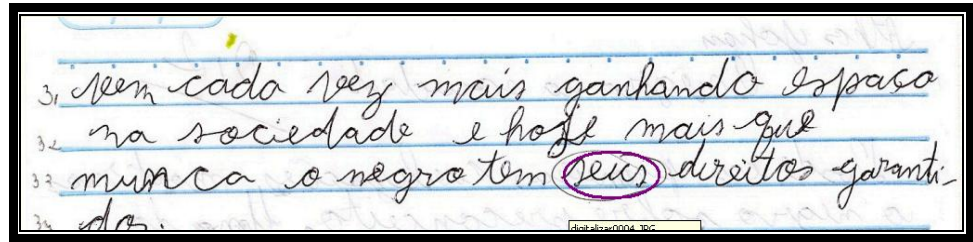 31 vem cada vez mais ganhando espaço
32 na sociedade e hoje mais que
33 munca o negro tem seus direitos garanti-
34 dos.
digitalizar0004.JPG